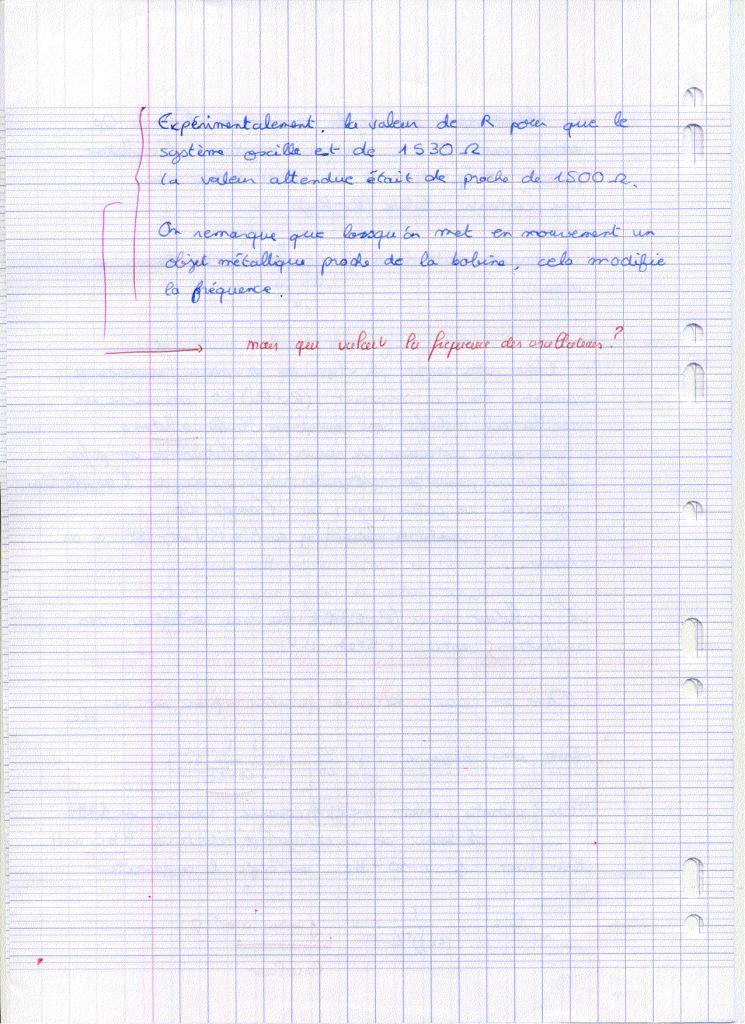 Expérimentalement, la valeur de R pour que le
système oscille est de 1530 Ω
la valeur attendue était de proche de 1500 Ω.
On remarque que lorsqu'on met en mouvement un
objet métallique proche de la bobine, cela modifie
la fréquence.
mais que valait la fréquence des oscillations ?